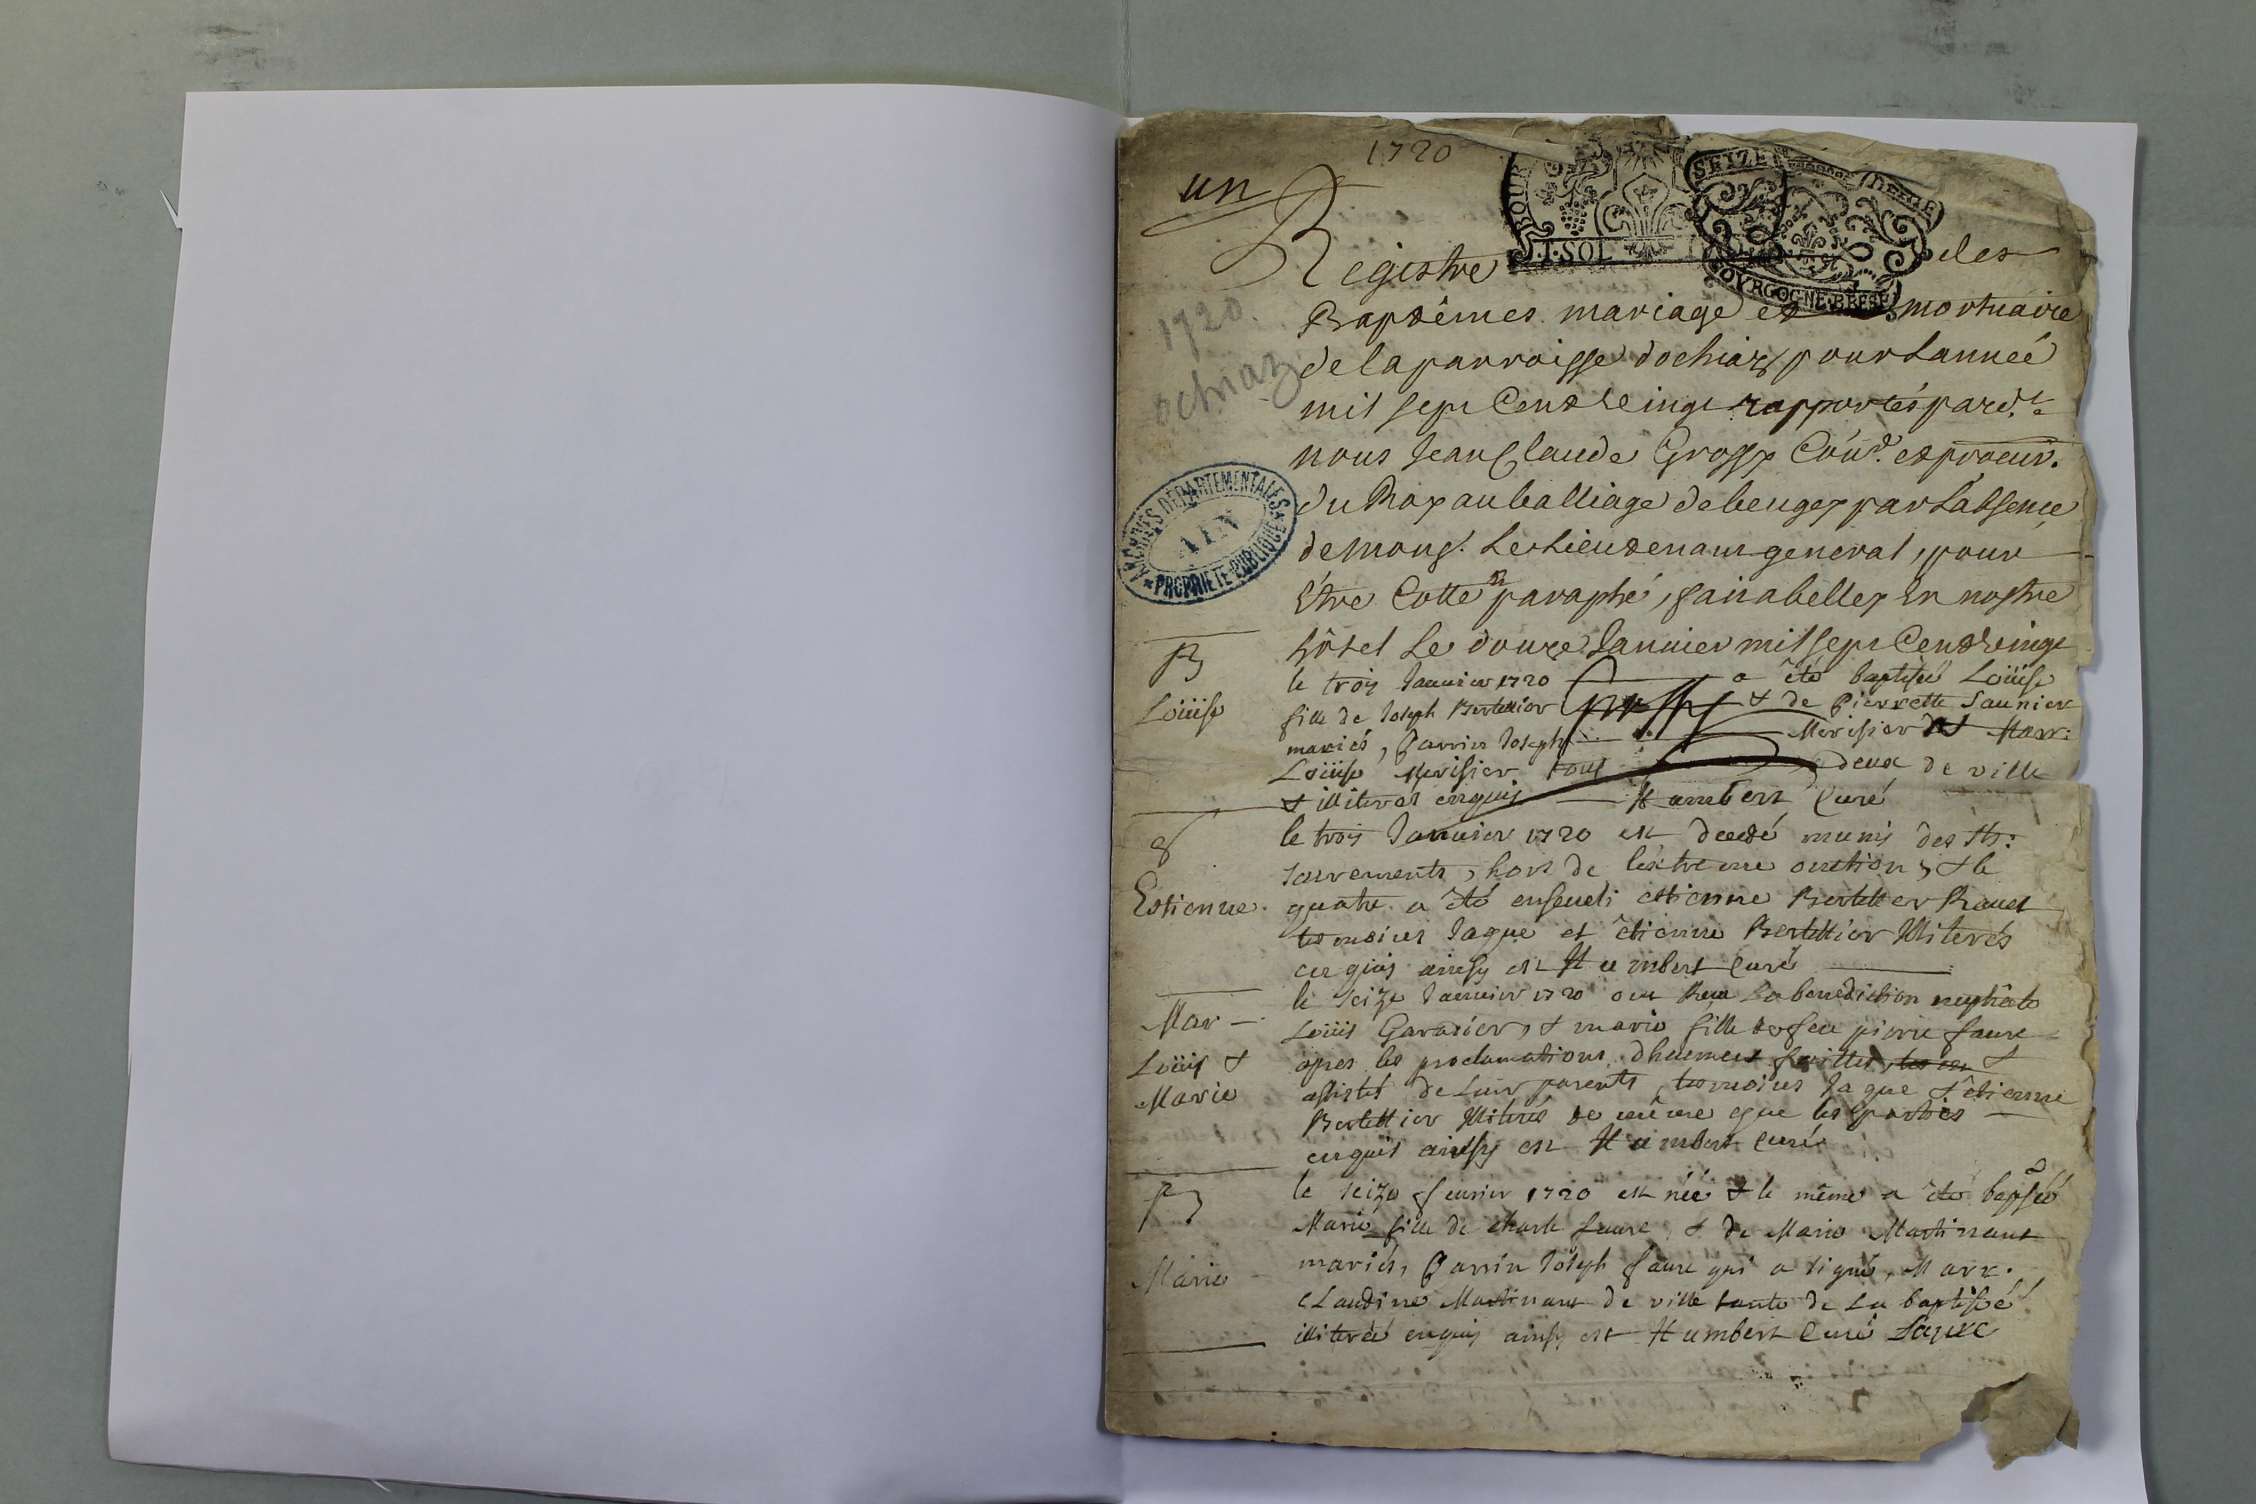 1720
un
BOUR
1·SOL
SEIZE
BOVRGOGNE·BRESSE
Registre des
1720.
ochiaz
Baptêmes mariage et mortuaire
de la parroisse dochiaz pour Lanneé
mil sept Cent Vingt rapportés pard.t
nous Jean Claude Grossy Con.r et procur.
du Roy au balliage de beugey par Labsence
de mons.r Le Lieutenant general, pour
Être Cotte et paraphé, fait a belley En nostre
hôtel Le douze Januier mil sept Cent Vingt
ARCHIVES DÉPARTEMENTALES
AIN
PROPRIÉTÉ PUBLIQUE
B
Loüise
le trois Januier 1720 a êté baptisée Loüise
fille de Joseph Bertellier & de Pierrette Saunier
mariés, Parrin Joseph Merisier & Marr:
Loüise Merisier tous deux de ville
& illiterés enquis Humbert Curé
Estienne.
le trois Januier 1720 est decedé munis des Sts:
sacrements, hors de lextreme onction, & le
quatre a êté enseueli estienne Bertellier
tesmoins Jaque et êtienne Bertellier illiterés
enquis ainsy est Humbert Curé
Mar –
Loüis &
Marie
le seize Januier 1720 ont Receu La benediction nuptiale
Loüis Garadier, & marie fille de feu pierre faure
apres les proclamations dhuement faittes, &
assistés de Leur parents, tesmoins Jaque & êtienne
Bertellier illiterés de même que les parties
enquis ainsy est Humbert Curé
B
Marie
le seize feurier 1720 est néé & le même a êté baptiséé
Marie fille de charle faure, & de Marie Martinant
mariés, Parrin Joseph faure qui a signé, Marr.
Claudine Martinant de ville tante de La baptiséé
illiteréé enquis ainsy est Humbert Curé faure